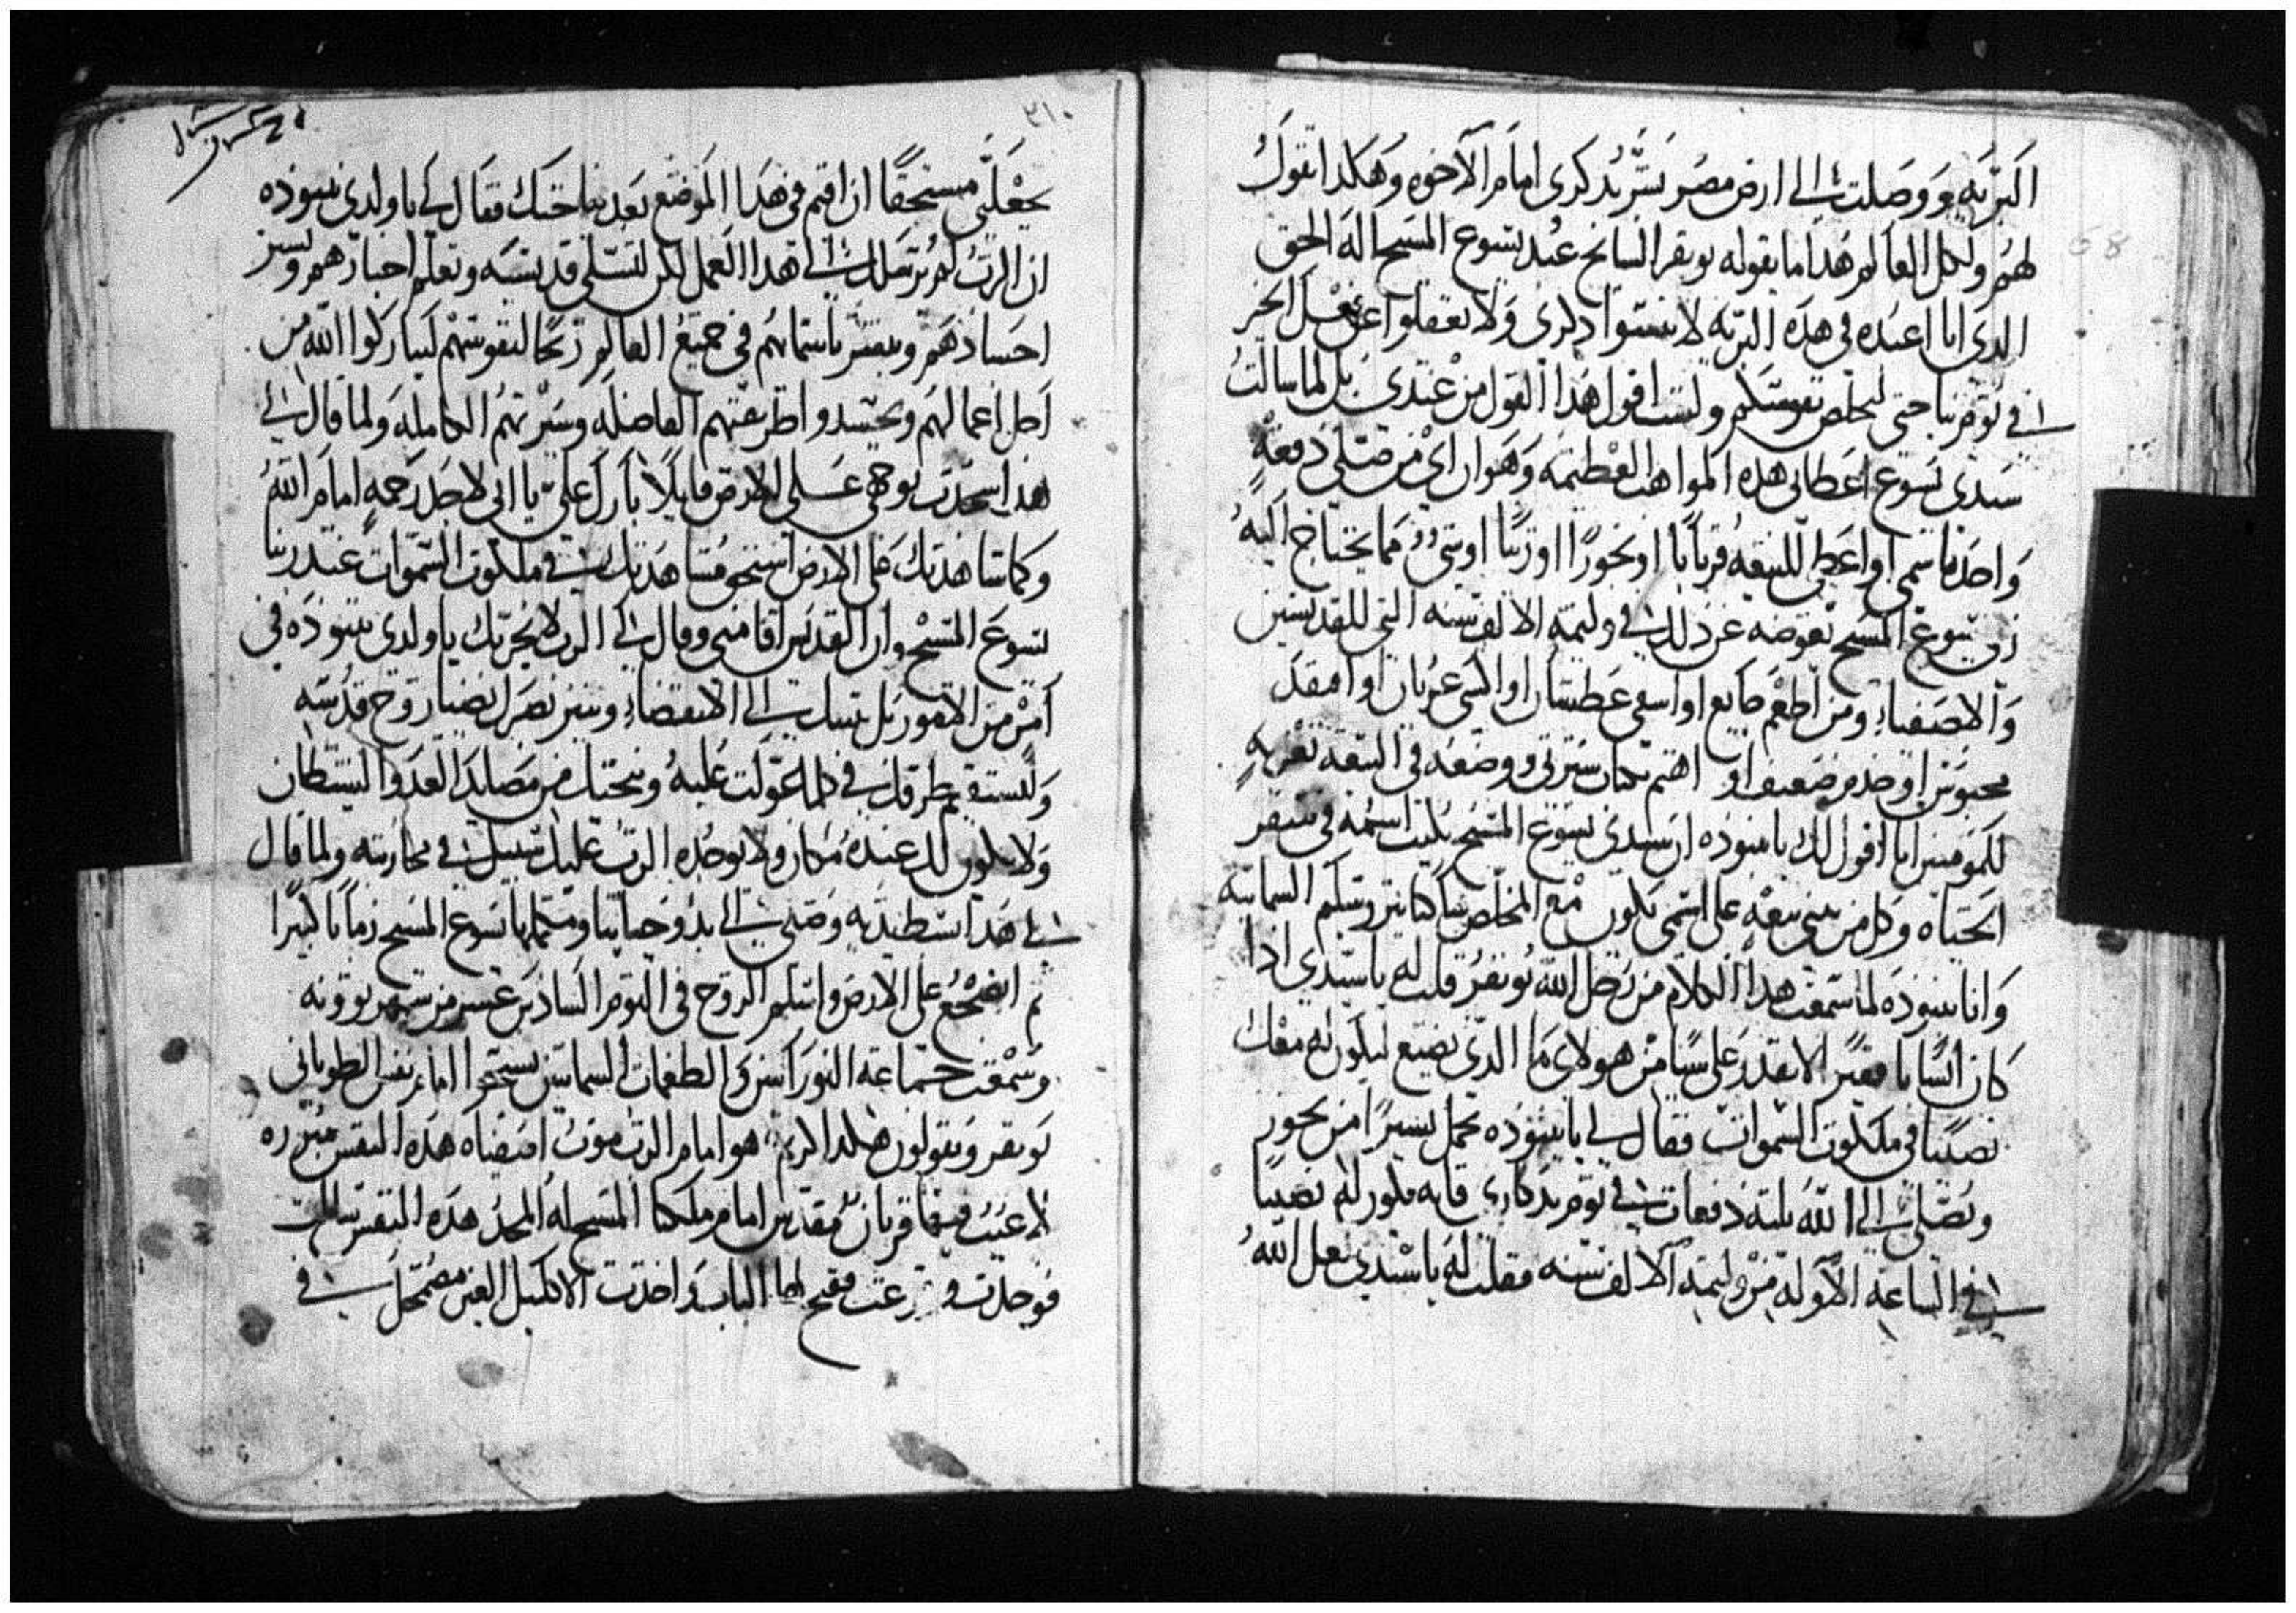 البريه ووصلت الى ارض مصر بشر بدكرى امام الاخوه وهكدا تقول
لهم ولكل العالم هدا ما يقوله بونفر السايح عبد يسوع المسيح الاله الحق
الدى انا اعبده فى هده البريه لا تنسوا دكرى ولا تغفلوا عن فعل الخير
فى يومنا حتى تخلص نفوسكم ولست اقول هدا القول من عندى بل لما سالت
سيدى يسوع اعطانى هده المواهب العظيمه وهو ان اى من صلى دفعة
واحده باسمى او اعطى للبيعه قربانا او بخورا او زيتا او شى مما يحتاج اليه
ربى يسوع المسيح يعوضه عن دلك فى وليمة الالف سنه التى للقديسين
والاصفياء ومن اطعم جايع او اسقى عطشان او اكسى عريان او افتقد
محبوس او خدم ضعيف او اهتم بكتاب سيرتى ووضعه فى البيعه تعزيه
للمومنين انا اقول لك يا ببنوده ان سيدى يسوع المسيح يكتب اسمه فى سفر
الحياه وكل من يبنى بيعه على اسمى يكون مع المخلص ساكنا بيروشليم السمايه
وانا ببنوده لما سمعت هدا الكلام من رجل الله بونفر قلت له يا سيدى ادا
كان انسانا فقير لا يقدر على شيا من هولاى ما الدى يصنع ليكون له معك
نصيبا فى ملكوت السموات فقال لى يا ببنوده يحمل يسيرا من بخور
ويصلى الى الله ثلثة دفعات فى يوم تدكارى فانه يكون له نصيبا
فى الساعه الاوله من وليمة الالف سنه فقلت له يا سيدى لعل الله
٢١٠
يجعلنى مستحقا ان اقيم فى هدا الموضع بعد نياحتك فقال لى يا ولدى ببنوده
ان الرب لم يرسلك الى هدا العمل لكن لتسلى قديسيه وتعلم اخبارهم وتستر
اجسادهم وتبشر باسمايهم فى جميع العالم ربحا لنفوسهم ليباركوا الله من
اجل اعمالهم ويحسدوا طريقتهم الفاضله وسيرتهم الكامله ولما قال لى
هدا سجدت بوجهى على الارض قايلا بارك على يا ابى لاجد رحمه امام الله
وكما شاهدتك على الارض استحق مشاهدتك فى ملكوت السموات عند ربنا
يسوع المسيح وان القديس اقامنى وقال لى الرب لا يحزنك يا ولدى ببنوده فى
امر من الامور بل يثبتك الى الانقضاء وينير بصرك بضيا روح قدسه
وتستقيم طرقك فى كلما عولت عليه وينجيك من مصايد العدو الشيطان
ولا يكون لك عنده مكان ولا يوجده الرب عليك سبيل فى محاربته ولما قال
لى هدا بسط يديه وصلى الى بدو حياتنا ومكملها يسوع المسيح زمانا كبيرا
ثم انضجع على الارض واسلم الروح فى اليوم السادس عشر من شهر بوونه
وسمعت جماعة النورانين والطغمات السماييين يسبحوا امام نفس الطوبانى
بونفر ويقولون هكدا كريم هو امام الرب موت اصفياه هده النفس مبرره
لا عيب فيها قربان مقدس امام ملكنا المسيح له المجد هده النفس سالت
فوجدت وقرعت ففتح لها الباب واخدت الاكليل الغير مضمحل فى